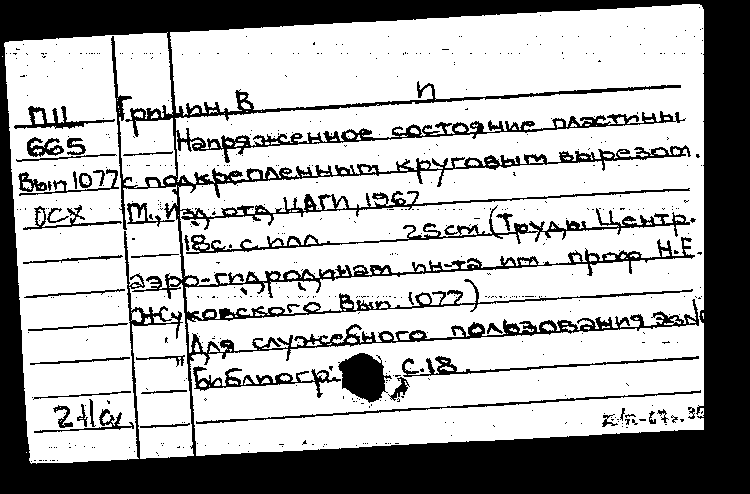 П11 Гришин, В П
665 Напряженное состояние пластины
Вып 1077 с подкрепленным круговым вырезом.
ОСХ М., Изд. отд. ЦАГИ, 1967
18с. с илл. 25см. (Труды Центр.
аэро-гидродинам. ин-та им. проф. Н.Е.
Жуковского. Вып. 1077)
"Для служебного пользования экз
Библиогр: с.18.